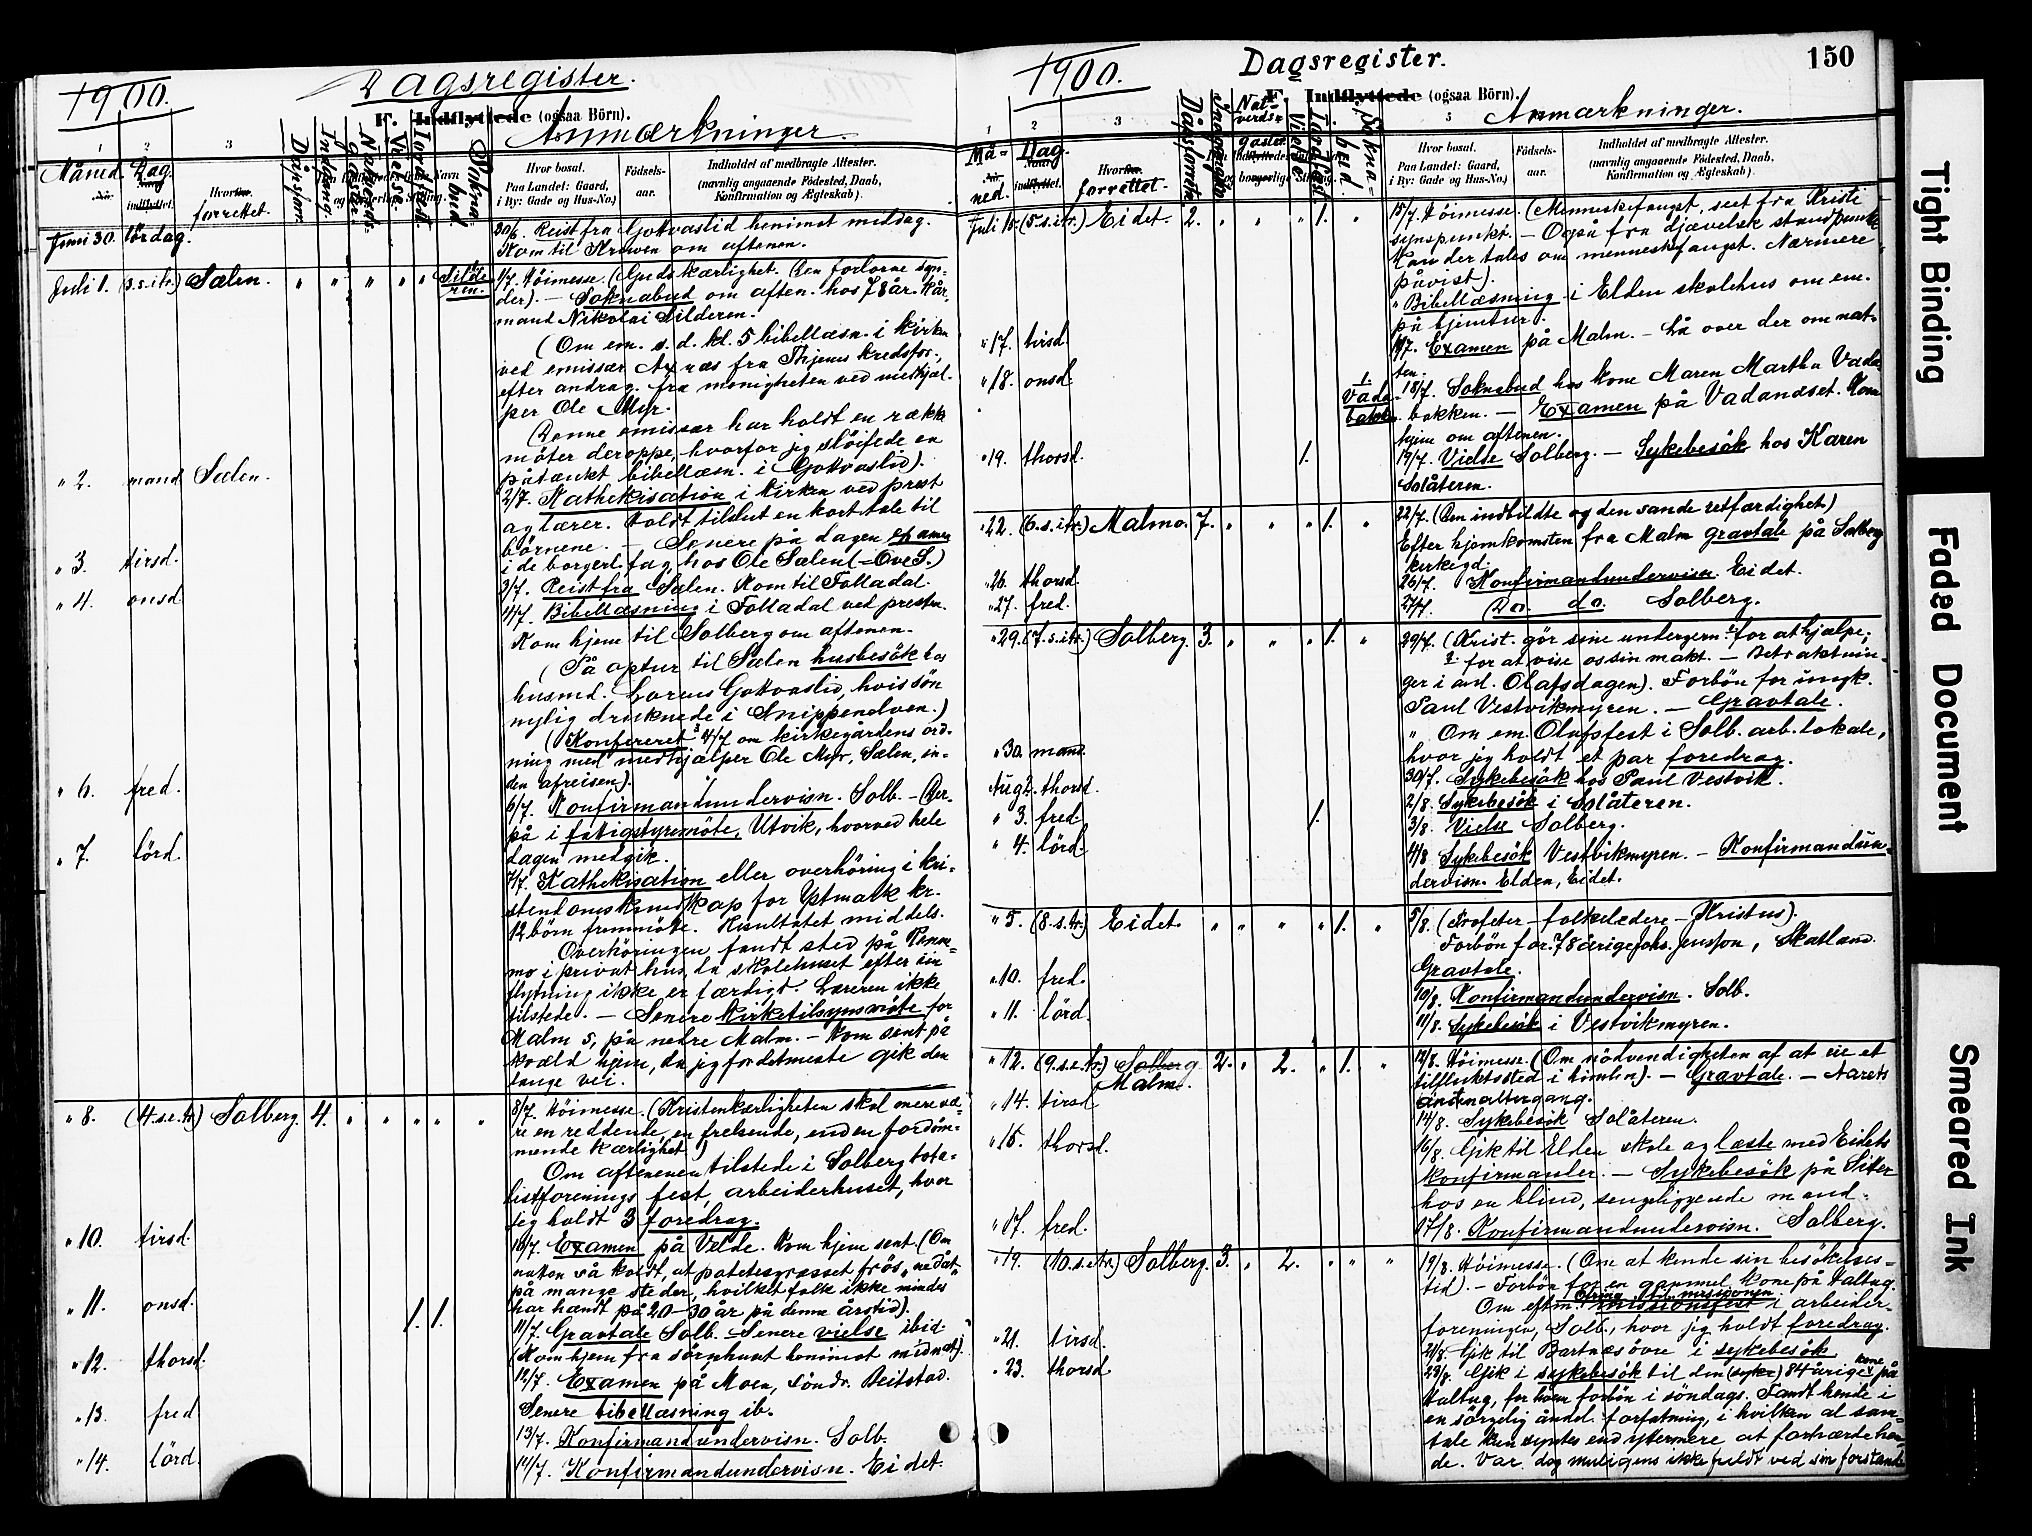 1900.
Dagsregister.
F. Indflyttede (ogsaa Börn).
Anmærkninger.
1 2 3
Måned. Dag. Hvor forrettet.
Dåpsforr. Nadverds- gæster Vielse. Jordfest. Sokne- bud
Hvor bosat. Paa Landet: Gaard, i By: Gade og Hus-No.)
Födsels- aar.
Indholdet af medbragte Attester. (navnlig angaaende Födested, Daab, Konfirmation og Ægteskab).
Juni 30. lördag. 30/6. Reist fra Gotvaslid henimot midag.
Kom til Kroven om aftenen.
Juli 1. (3.s.e.tr.) Sælen. 1/7. Höimesse. (Guds kærlighet. Den forlorne syn-
der). – Soknebud om aften. hos 78 år. kår-
mand Nikolai Silderen.
(Om em. s. d. kl. 5 bibellæsn. i kirken
ved emissær Axnæs fra Thjems kredsfor.,
efter andrag. fra menigheten ved medhjæl-
per Ole Myr.
Denne emissær har holdt en række
möter deroppe, hvorfor jeg slöifede en
påtænkt bibellæsn. i Gotvaslid).
" 2. mand. Sælen. 2/7. Kathekisation i kirken ved prest
og lærer. Holdt tilslut en kort tale til
börnene. – Senere på dagen examen
i de borgerl. fag, hos Ole Sælen (= Ove S.)
" 3. tirsd. 3/7. Reist fra Sælen. Kom til Folladal.
" 4. onsd. 4/7. Bibellæsning i Folladal ved presten.
Kom hjem til Solberg om aftenen.
(På optur til Sælen husbesök hos
husmd. Lorens Gotvaslid, hvis sön
nylig druknede i Snippenelven.)
(Konfereret 3/7 om kirkegårdens ord-
ning med medhjælper Ole Myr, Sælen, in-
den afreisen).
" 6. fred. 6/7. Konfirmandundervisn. Solb. – Der-
på i fattigstyremöte, Utvik, hvorved hele
dagen medgik.
" 7. lörd. 7/7. Kathekisation eller overhöring i kri-
stendomskundskap for Ystmark kr.
12 börn fremmöte. Resultatet middels.
Overhöringen fandt sted på Remm-
mo i privat hus, da skolehuset efter sin
flytning ikke er færdigt. Læreren ikke
tilstede. – Senere kirketilsynsmöte for
Malm s, på nedre Malm. – Kom sent på
kvæld hjem, da jeg fordetmeste gik den
lange vei.
" 8. (4.s.e.tr.) Solberg. 4. 8/7. Höimesse. (Kristenkærligheten skal mere væ-
re en reddende, en frelsende, end en fordöm-
mende kærlighet)
Om aftenen tilstede i Solberg tota-
listforenings fest, arbeiderhuset, hvor
jeg holdt 3 foredrag.
" 10. tirsd. 10/7. Examen på Velde. Kom hjem sent. (Om
natten så koldt, at potetesgræsset frös "nedåt"
på mange steder, hvilket folk ikke mindes
har hændt på 20–30 år på denne årstid).
" 11. onsd. 1. 1. 11/7. Gravtale Solb. Senere vielse ibid.
(Kom hjem fra sörgehuset henimot midnat).
" 12. thorsd. 12/7. Examen på Moen, söndr. Beitstad.
Senere bibellæsning ib.
" 13. fred. 13/7. Konfirmandundervisn. Solb.
" 14. lörd. 14/7. Konfirmandundervisn. Eidet.
1900.
Dagsregister.
150
F. Indflyttede (ogsaa Börn).
Anmærkninger.
1 2 3 5
Må- ned. Dag. Hvor forrettet.
Dåpsforr. Nat- verds- gæster. Vielse Sokne- bud
Hvor bosat. Paa Landet: Gaard, i By: Gade og Hus-No.)
Födsels- aar.
Indholdet af medbragte Attester. (navnlig angaaende Födested, Daab, Konfirmation og Ægteskab).
Juli 15. (5.s.e.tr.) Eidet. 2. 1. 15/7. Höimesse. (Menneskefangst, seet fra Kristi
synspunkt. – Også fra djævelsk standpunkt
kan der tales om menneskefangst. Nærmere
påvist).
" Bibellæsning i Elden skolehus om em.
på hjemtur.
" 17. tirsd. 17/7. Examen på Malm. – Lå over der om nat-
ten.
" 18. onsd. 1. Vada- bakken 18/7. Soknebud hos kone Maren Martha Vada-
bakken. – Examen på Vadandset. Kom
hjem om aftenen.
" 19. thorsd. 1. 19/7. Vielse Solberg. – Sykebesök hos Karen
Solåteren.
" 22. (6.s.e.tr.) Malmo. 7. 1. 22/7. (Om indbildte og den sande retfærdighet)
Efter hjemkomsten fra Malm gravtale på Solberg
kirkegd.
" 26. thorsd. 26/7. Konfirmandundervisn. Eidet.
" 27. fred. 27/7. Do. do. Solberg.
" 29. (7.s.e.tr.) Solberg. 3. 1. 29/7. (Krist. gör sine undergern. 1 for at hjælpe;
2 for at vise os sin makt. – Betraktnin-
ger i anl. Olafsdagen). Forbön for ungk.
Paul Vestvikmyren. – Gravtale.
" Om em. Olafsfest i Solb. arb. lokale,
hvor jeg holdt et par foredrag.
" 30. mand. 30/7. Sykebesök hos Paul Vestvik.
Aug 2. thorsd. 2/8. Sykebesök i Solåteren.
" 3. fred. 1. 3/8. Vielse Solberg.
" 4. lörd. 4/8. Sykebesök Vestvikmyren. – Konfirmandun-
dervisn. Elden, Eidet.
" 5. (8.s.tr.) Eidet. 1. 5/8. (Profeter – folkeledere – Kristus).
Forbön for 78 årige Johs. Jensson, Skatland.
Gravtale.
" 10. fred. 10/8. Konfirmandundervisn. Solb.
" 11. lörd. 11/8. Sykebesök i Vestvikmyren.
" 12. (9.s.e.tr.) Solberg Malm. 2. 2. 1. 12/8. Höimesse. (Om nödvendigheten af at eie et
tilflugtssted i himlen). – Gravtale. – Aarets
anden altergang.
" 14. tirsd. 14/8. Sykebesök Solåteren.
" 15. thorsd. 16/8. Gik til Elden skole og læste med Eidets
konfirmanter. – Sykebesök på Sitter
hos en blind, sengeliggende mand.
" 17. fred. 17/8. Konfirmandundervisn. Solberg.
" 19. (10.s.e.tr.) Solberg. 3. 2. 19/8. Höimesse. (Om at kende sin besökelses-
tid). – Forbön for en gammel kone på Haltug.
Om eftm. missionsfest i arbeider-
foreningen, Solb., hvor jeg holdt foredrag.
" 21. tirsd. 21/8. Gik til Bartnæs övre i sykebesök
" 23. thorsd. 23/8. Gik i sykebesök til den (syke) 84 årige kone på
Haltug, for hvem forbön i söndags. Fandt hende i
en sörgelig åndel. forfatning, i hvilken al sam-
tale kun syntes end ytermere at forhærde hen-
de. Var dog muligens ikke fuldt ved sin forstand
Tight Binding
Faded Document
Smeared Ink